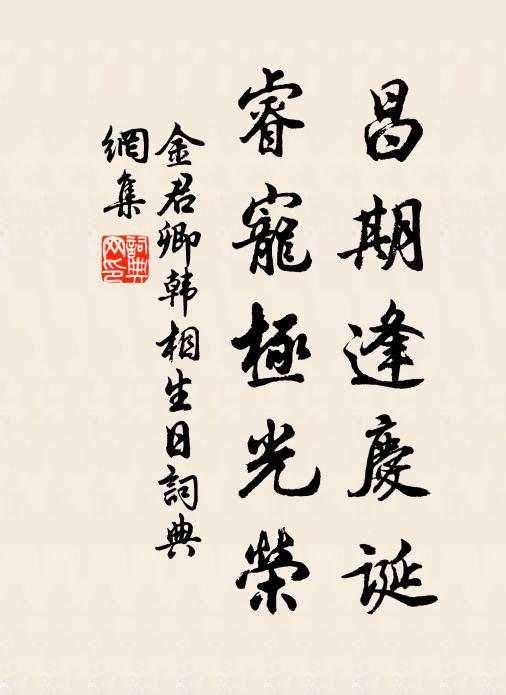 昌期逢慶誕
睿寵極光榮
金君卿韓相生日詞典
網集
詞典
网印